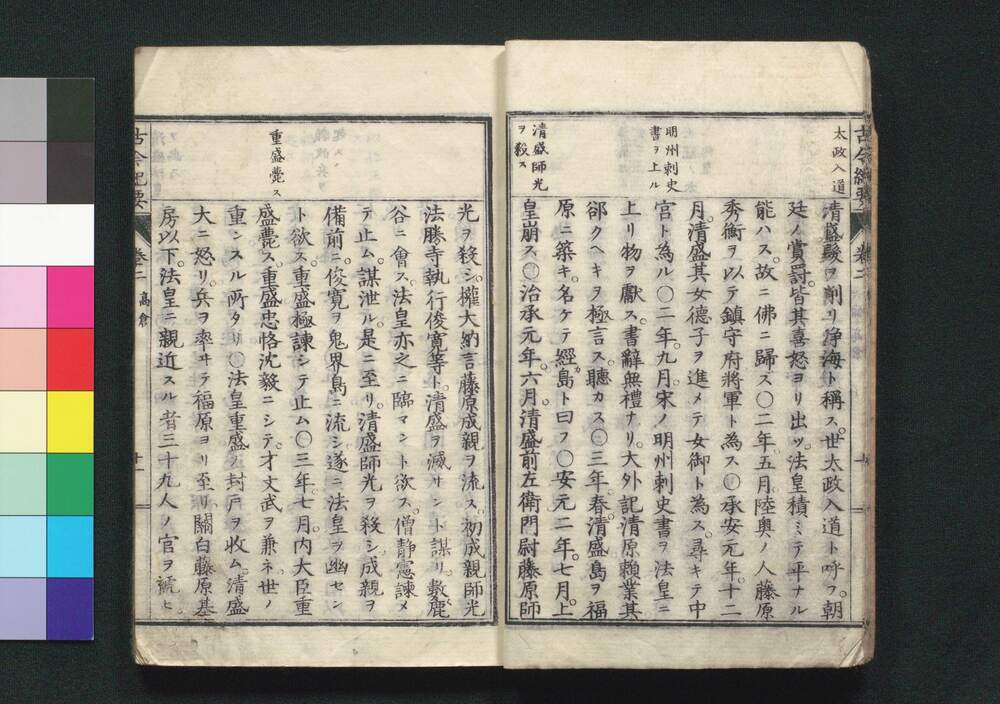 古今紀要 卷二
太政入道
清盛髮ヲ削リ淨海ト稱ス。世太政入道ト呼フ。朝
廷ノ賞罰。皆其喜怒ヨリ出ツ。法皇積ミテ平ナル
能ハス。故ニ佛ニ歸ス〇二年。五月。陸奧ノ人藤原
秀衡ヲ以テ鎮守府將軍ト為ス〇承安元年。十二
月。清盛其女德子ヲ進メテ女御ト為ス。尋キテ中
明州刺史
書ヲ上ル
宮ト為ル〇二年。九月。宋ノ明州刺史書ヲ法皇ニ
上リ物ヲ獻ス。書辭無禮ナリ。大外記清原賴業其
郤クヘキヲ極言ス。聽カス〇三年。春。清盛島ヲ福
原ニ築キ。名ケテ經島ト曰フ〇安元二年。七月。上
清盛師光
ヲ殺ス
皇崩ス〇治承元年。六月。清盛前左衛門尉藤原師
光ヲ殺シ。權大納言藤原成親ヲ流ス。初成親師光
法勝寺執行俊寛等ト。清盛ヲ滅サント謀リ。數鹿
谷ニ會ス。法皇亦之ニ臨マント欲ス。僧靜憲諫メ
テ止ム。謀泄ル。是ニ至リ。清盛師光ヲ殺シ。成親ヲ
備前ニ。俊寛ヲ鬼界島ニ流シ。遂ニ法皇ヲ幽セン
ト欲ス。重盛極諫シテ止ム〇三年。七月。内大臣重
重盛薨ス
盛薨ス。重盛忠恪沈毅ニシテ。才文武ヲ兼ネ。世ノ
重ンスル所タリ〇法皇重盛ノ封戸ヲ收ム。清盛
大ニ怒リ。兵ヲ率ヰテ福原ヨリ至リ。關白藤原基
房以下。法皇ニ親近スル者三十九人ノ官ヲ褫ヒ
古今紀要 卷二 高倉 十一